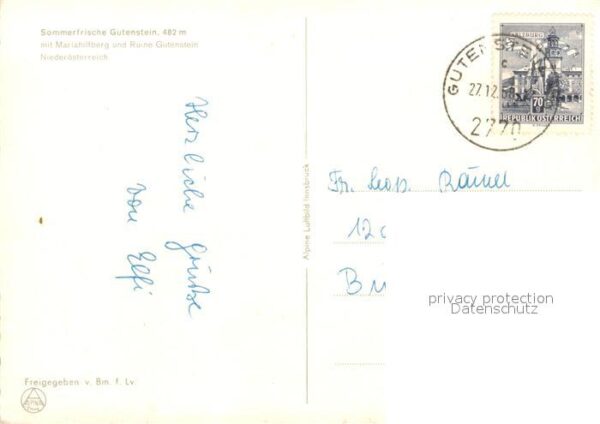 Sommerfrische Gutenstein, 482 m
mit Mariahilfberg und Ruine Gutenstein
Niederösterreich
Herzliche Grüße
von Elfi
Alpine Luftbild Innsbruck
Freigegeben v. Bm. f. Lv.
SALZBURG
70
REPUBLIK ÖSTERREICH
GUTENSTEIN
c
27.12.
2770
Fr. Leop.
privacy protection
Datenschutz